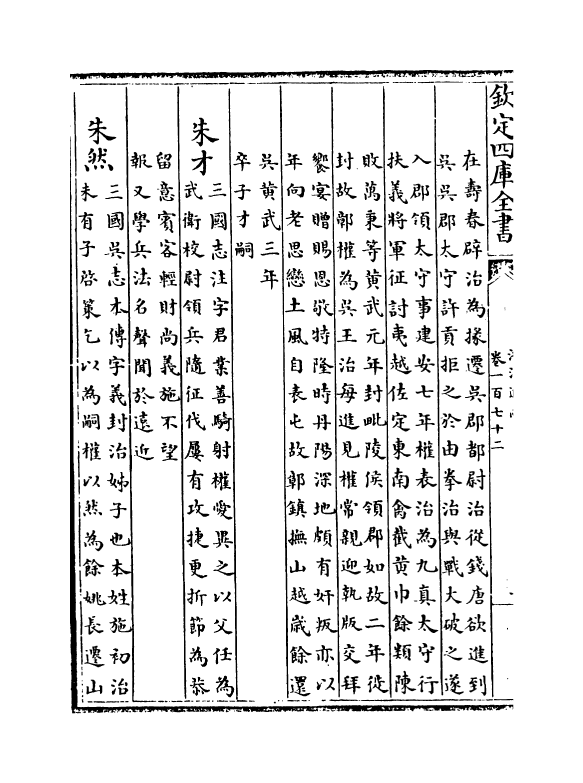 欽定四庫全書
卷一百七十二
在壽春辟治為掾遷吳郡都尉治從錢唐欲進到
吳吳郡太守許貢拒之於由拳治與戰大破之遂
入郡領太守事建安七年權表治為九真太守行
扶義將軍征討夷越佐定東南禽截黃巾餘類陳
敗萬秉等黃武元年封毗陵侯領郡如故二年徙
封故鄣權為吳王治每進見權常親迎執版交拜
饗宴贈賜恩敬特隆時丹陽深地頗有奸叛亦以
年向老思戀土風自表屯故鄣鎮撫山越歲餘還
吳黃武三年
卒子才嗣
朱才
三國志注字君業善騎射權愛異之以父任為
武衛校尉領兵隨征伐屢有攻捷更折節為恭
留意賓客輕財尚義施不望
報又學兵法名聲聞於遠近
朱然
三國吳志本傳字義封治姊子也本姓施初治
未有子啓策乞以為嗣權以然為餘姚長遷山